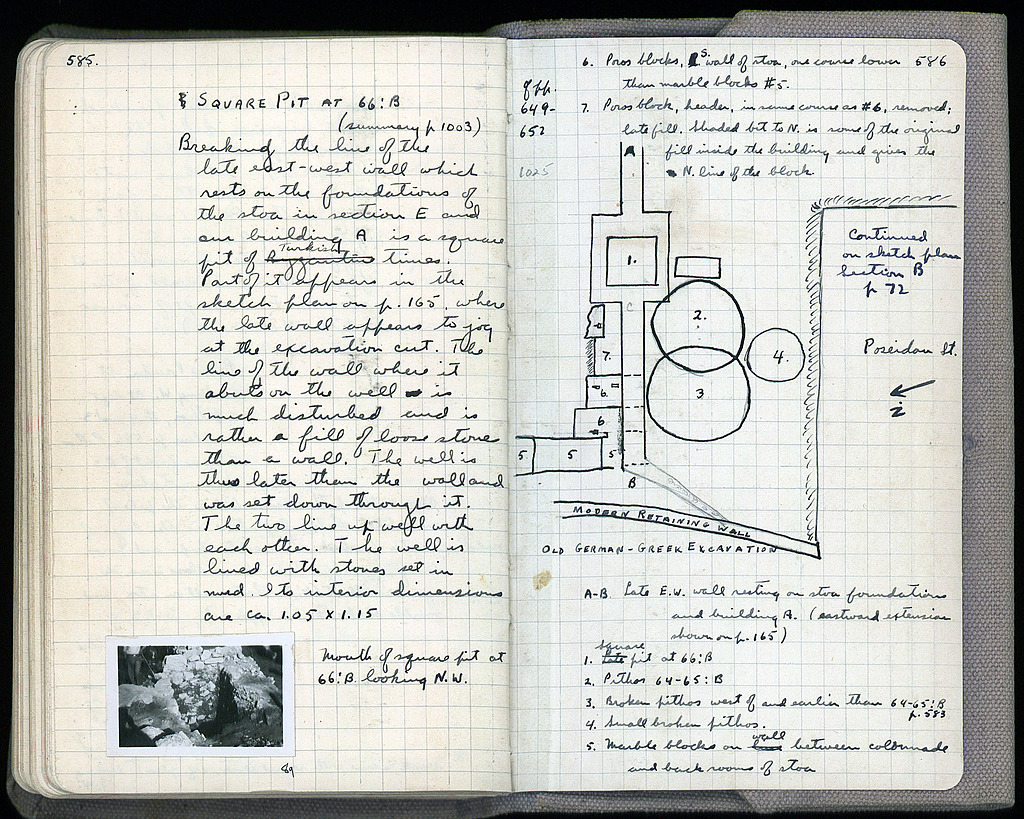 585.
SQUARE PIT AT 66:B
(summary p 1003)
Breaking the line of the
late east-west wall which
rests on the foundations of
the stoa in section E and
our building A is a square
Turkish
pit of Byzantine times.
Part of it appears in the
sketch plan on p. 165, where
the late wall appears to jog
at the excavation cut. The
line of the wall where it
abuts on the well is
much disturbed and is
rather a fill of loose stone
than a wall. The well is
thus later than the wall and
was set down through it.
The two line up well with
each other. The well is
lined with stones set in
mud. Its interior dimensions
are ca. 1.05 x 1.15
Mouth of square pit at
66:B looking N.W.
89
586
6. Poros blocks, S. wall of stoa, one course lower
than marble blocks #5.
Opp.
649-
652
1025
7. Poros block, header, in same course as #6, removed;
late fill. Shaded bit to N. is some of the original
fill inside the building and gives the
N. line of the block.
A
1.
C
2.
7.
4.
3
6.
6
5
5
5
B
Continued
on sketch plan
Section B
p 72
Poseidon St.
MODERN RETAINING WALL
OLD GERMAN-GREEK EXCAVATION
A-B. Late E.W. wall resting on stoa foundations
and building A. (eastward extension
shown on p. 165)
square
1. Late pit at 66:B
2. Pithos 64-65:B
3. Broken pithos west of and earlier than 64-65:B
p. 583
4. Small broken pithos.
wall
5. Marble blocks on between colonnade
and back rooms of stoa